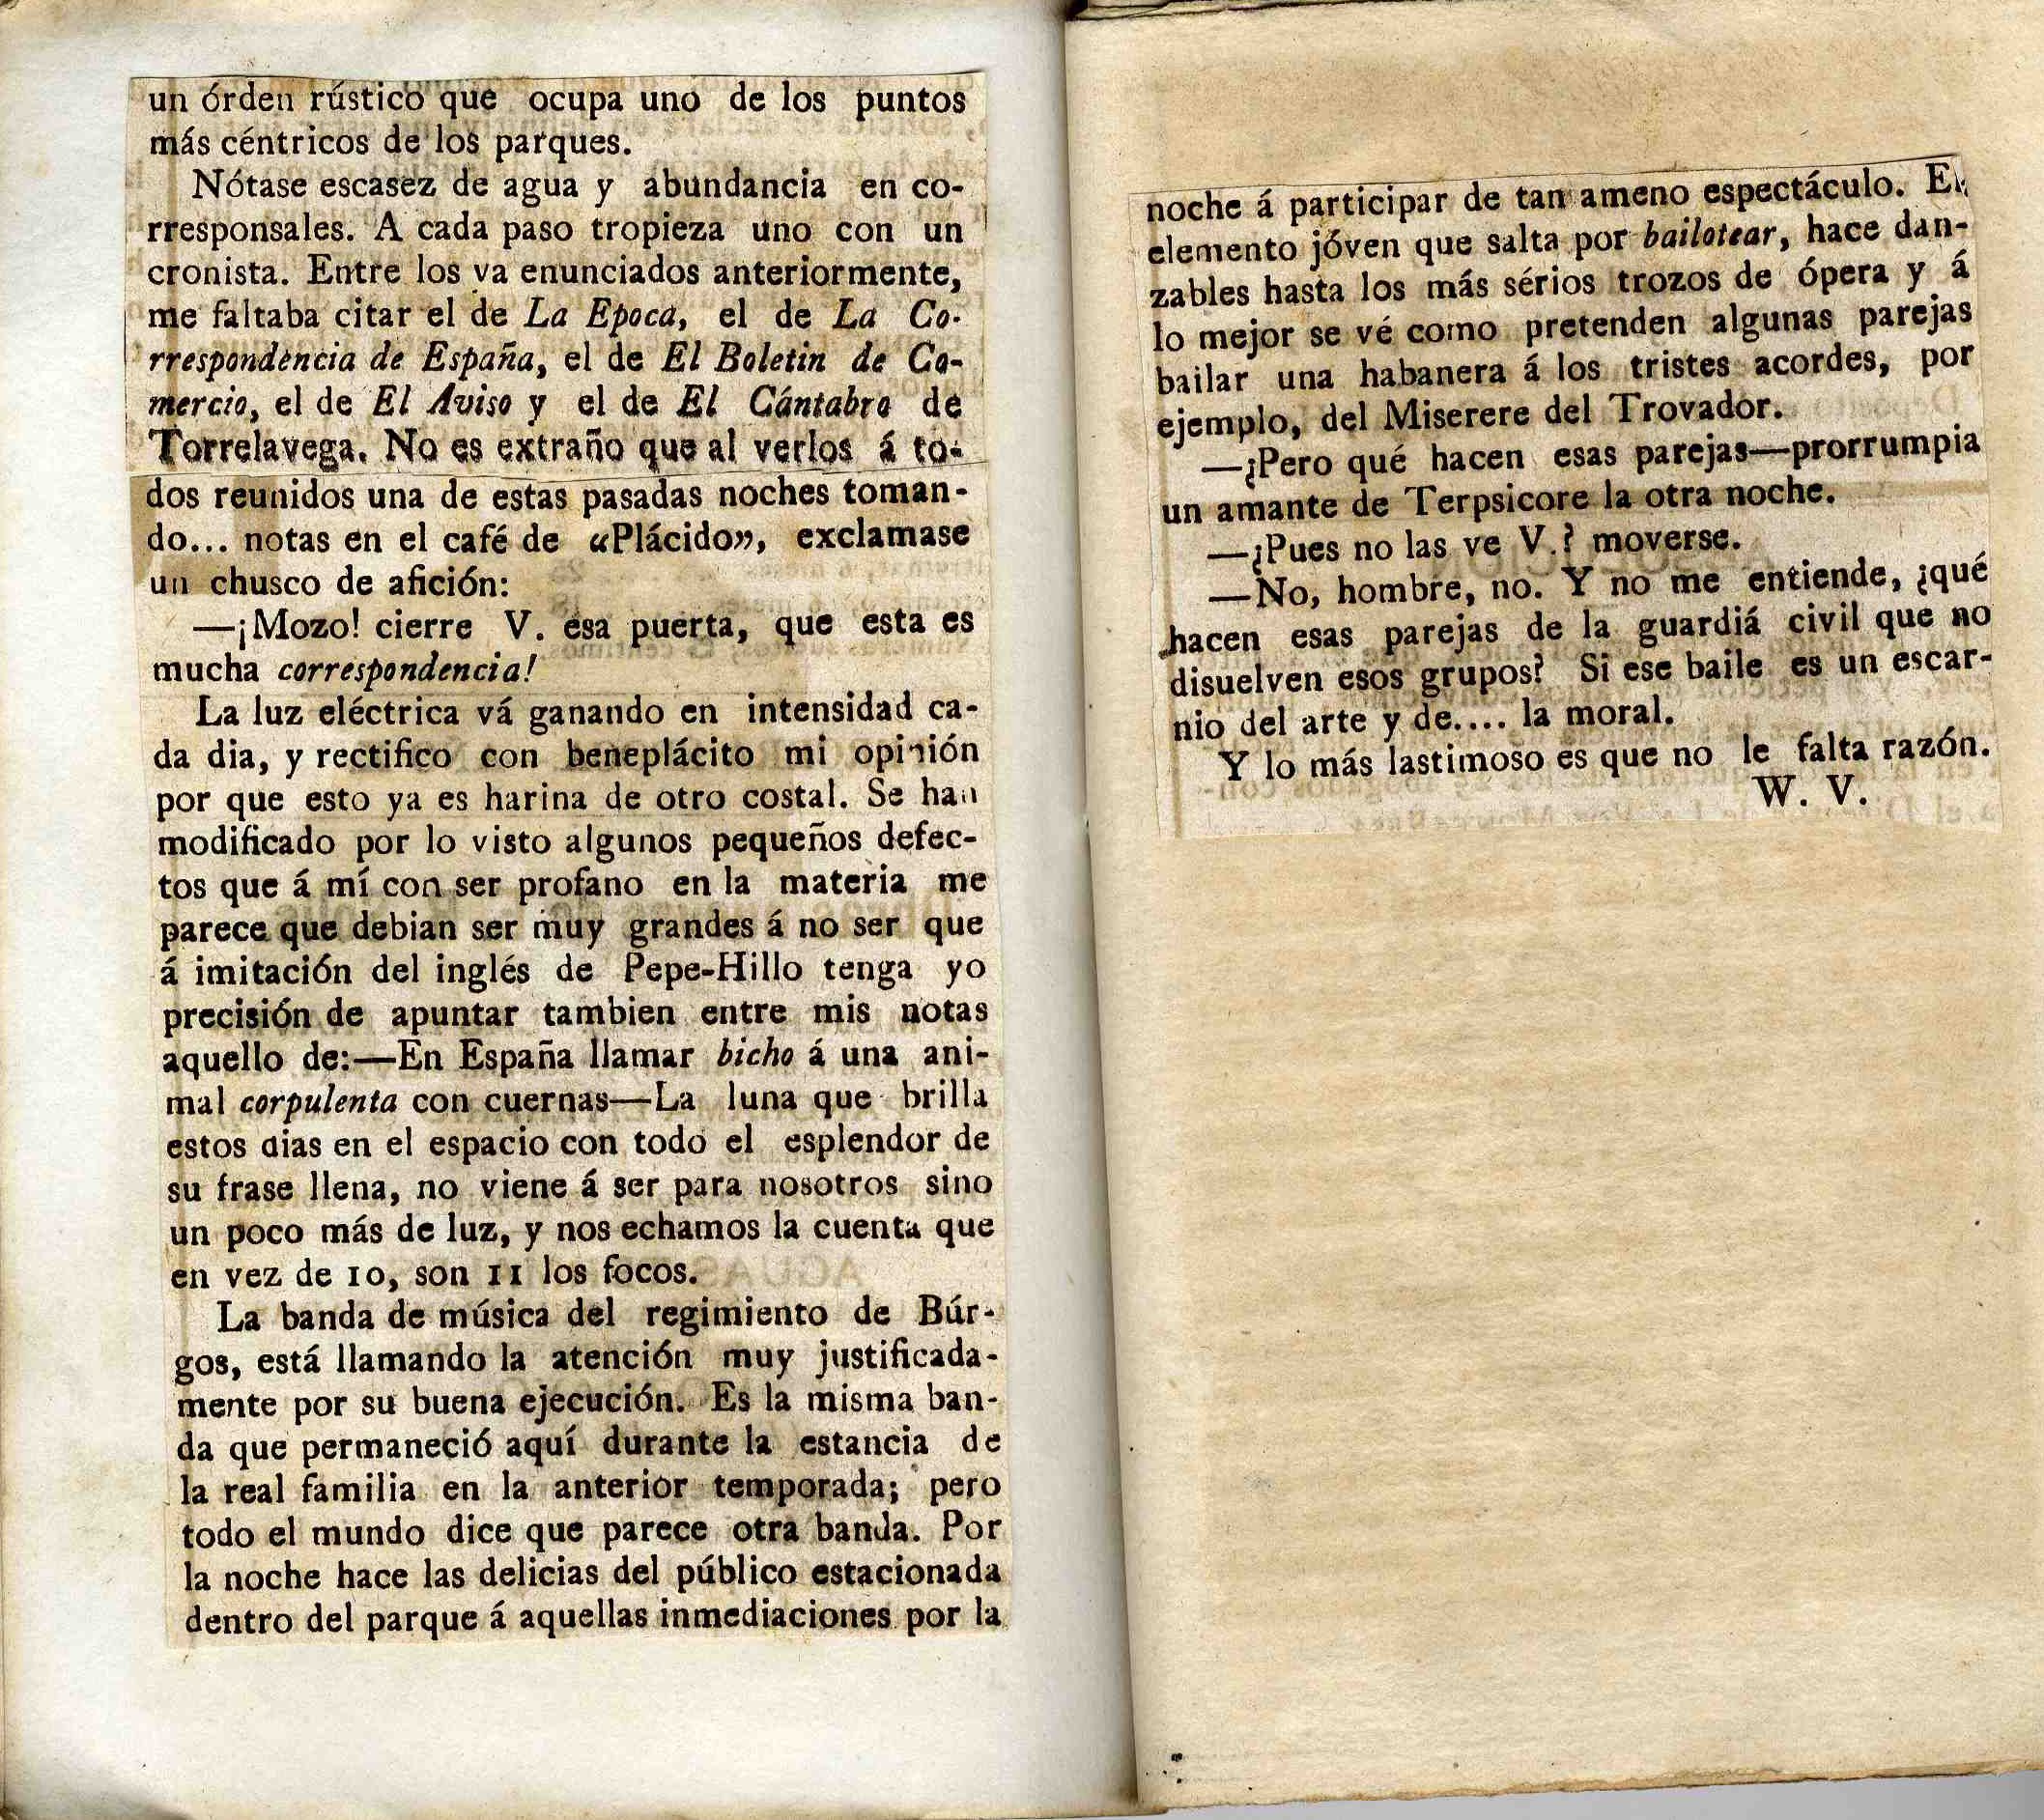 un órden rústico que ocupa uno de los puntos
más céntricos de los parques.
Nótase escasez de agua y abundancia en co-
rresponsales. A cada paso tropieza uno con un
cronista. Entre los ya enunciados anteriormente,
me faltaba citar el de La Epoca, el de La Co-
rrespondencia de España, el de El Boletin de Co-
mercio, el de El Aviso y el de El Cántabro de
Torrelavega. No es extraño que al verlos á to-
dos reunidos una de estas pasadas noches toman-
do... notas en el café de «Plácido», exclamase
un chusco de afición:
—¡Mozo! cierre V. esa puerta, que esta es
mucha correspondencia!
La luz eléctrica vá ganando en intensidad ca-
da dia, y rectifico con beneplácito mi opinión
por que esto ya es harina de otro costal. Se han
modificado por lo visto algunos pequeños defec-
tos que á mí con ser profano en la materia me
parece que debian ser muy grandes á no ser que
á imitación del inglés de Pepe-Hillo tenga yo
precisión de apuntar tambien entre mis notas
aquello de:—En España llamar bicho á una ani-
mal corpulenta con cuernas—La luna que brilla
estos dias en el espacio con todo el esplendor de
su frase llena, no viene á ser para nosotros sino
un poco más de luz, y nos echamos la cuenta que
en vez de 10, son 11 los focos.
La banda de música del regimiento de Búr-
gos, está llamando la atención muy justificada-
mente por su buena ejecución. Es la misma ban-
da que permaneció aquí durante la estancia de
la real familia en la anterior temporada; pero
todo el mundo dice que parece otra banda. Por
la noche hace las delicias del público estacionada
dentro del parque á aquellas inmediaciones por la
noche á participar de tan ameno espectáculo. El
elemento jóven que salta por bailotear, hace dan-
zables hasta los más sérios trozos de ópera y á
lo mejor se vé como pretenden algunas parejas
bailar una habanera á los tristes acordes, por
ejemplo, del Miserere del Trovador.
—¿Pero qué hacen esas parejas—prorrumpia
un amante de Terpsicore la otra noche.
—¿Pues no las ve V.? moverse.
—No, hombre, no. Y no me entiende, ¿qué
hacen esas parejas de la guardiá civil que no
disuelven esos grupos? Si ese baile es un escar-
nio del arte y de.... la moral.
Y lo más lastimoso es que no le falta razón.
W. V.